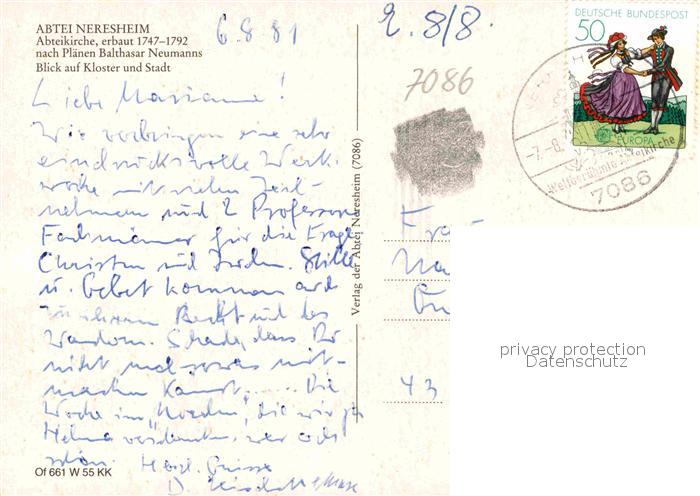 ABTEI NERESHEIM
Abteikirche, erbaut 1747–1792
nach Plänen Balthasar Neumanns
Blick auf Kloster und Stadt
6.8.81
Liebe Marianne!
Wir verbringen eine sehr
eindrucksvolle Werk-
woche mit vielen Teil-
nehmern und 2 Professoren
Fachmänner für die Frage
Christen und Juden. Stille
u. Gebet kommen auch
zu ihrem Recht und das
Wandern. Schade, dass Du
nicht mal sowas mit-
machen kannst..... Die
Woche im "Norden", die wir ja
Helma verdanken, war auch
schön. Herzl. Grüsse
D.
Of 661 W 55 KK
Verlag der Abtei Neresheim (7086)
E. 8/8.
7086
DEUTSCHE BUNDESPOST
50
EUROPA
-7.-8.
Abteikirche
7086
Fra-
43
privacy protection
Datenschutz